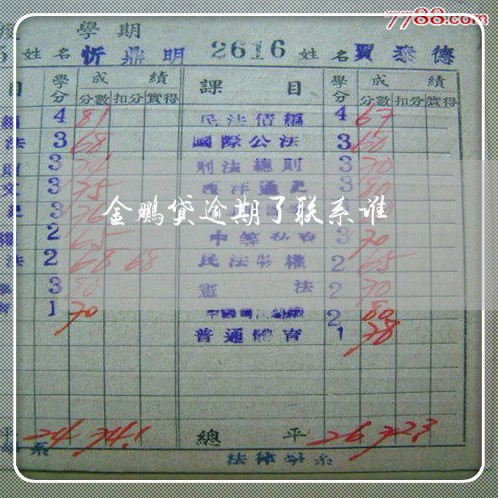 7788.com
學期
姓名 忻鼎明 2616 姓名 賈泰德
目 學分 成績 課目 學分 成績
分數 扣分 實得 分數 扣分 實得
4 81 民法債編 4 67
法 3 68 國際公法 3 60
3 刑法總則 3 70
3 75 西洋通史 3 80
金鹏贷逾期了联系谁
2 65 3 70
法 2 68 68 民法物權 2 65
3 80 憲法 2 70
1 70 2 80
普通體育 1 78
24 74.1 總平 26 72.3
系 法律學系